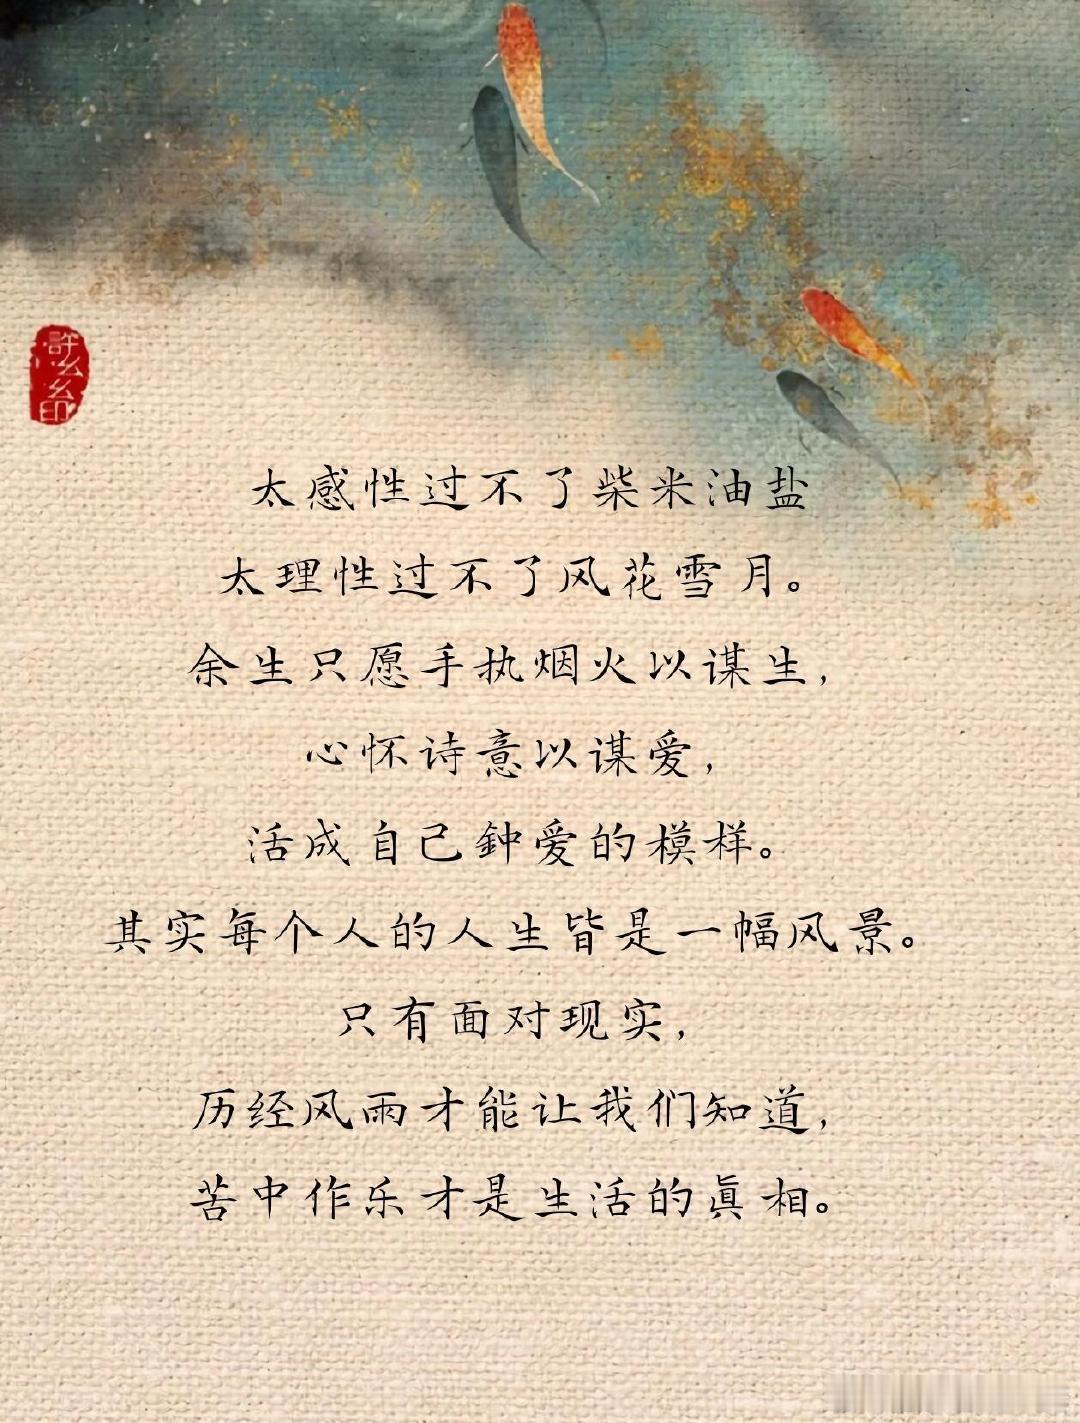 太感性过不了柴米油盐
太理性过不了风花雪月。
余生只愿手执烟火以谋生，
心怀诗意以谋爱，
活成自己鈡爱的模样。
其实每个人的人生皆是一幅风景。
只有面对现实，
历经风雨才能让我们知道，
苦中作乐才是生活的眞相。